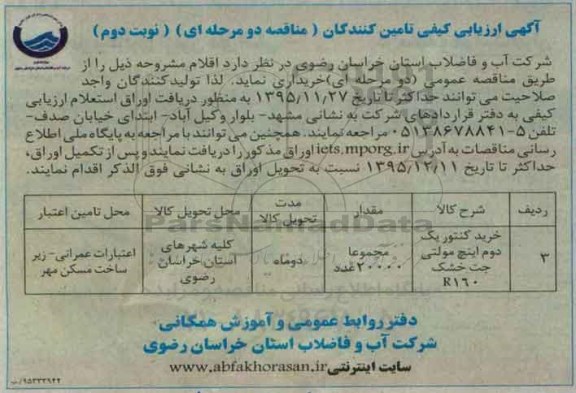 آگهی ارزیابی کیفی تامین کنندگان ( مناقصه دو مرحله ای) ( نوبت دوم)
شرکت آب و فاضلاب استان خراسان رضوی در نظر دارد اقلام مشروحه ذیل را از
طریق مناقصه عمومی (دو مرحله ای)خریداری نماید. لذا تولیدکنندگان واجد
صلاحیت می توانند حداکثر تا تاریخ ۱۳۹۵/۱۱/۲۷ به منظور دریافت اوراق استعلام ارزیابی
کیفی به دفتر قراردادهای شرکت به نشانی مشهد- بلوار وکیل آباد- ابتدای خیابان صدف-
تلفن ۵-۰۵۱۳۸۶۷۸۸۴۱ مراجعه نمایند. همچنین می توانند با مراجعه به پایگاه ملی اطلاع
رسانی مناقصات به آدرس iets.mporg.ir اوراق مذکور را دریافت نمایند و پس از تکمیل اوراق،
حداکثر تا تاریخ ۱۳۹۵/۱۲/۱۱ نسبت به تحویل اوراق به نشانی فوق الذکر اقدام نمایند.
ردیف شرح کالا مقدار مدت تحویل کالا محل تحویل کالا محل تامین اعتبار
۳ خرید کنتور یک دوم اینچ مولتی جت خشک R۱۶۰ مجموعا ۲۰۰۰۰عدد دوماه کلیه شهرهای استان خراسان رضوی اعتبارات عمرانی- زیر ساخت مسکن مهر
ParsNamadData
دفتر روابط عمومی و آموزش همگانی
شرکت آب و فاضلاب استان خراسان رضوی
سایت اینترنتی www.abfakhorasan.ir